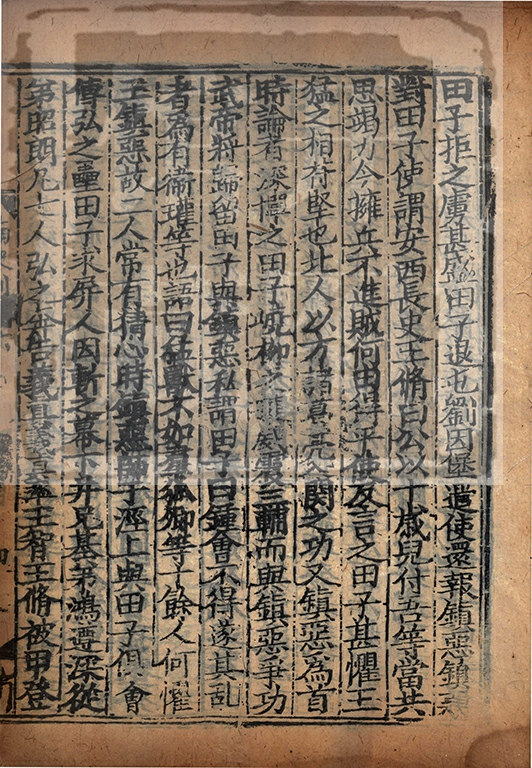 田子拒之虜甚盛田子退屯劉因堡遣使還報鎮惡鎮惡
對田子使謂安西長史王脩曰公以十歲兒付吾等當共
思竭力今擁兵不進賊何由得平使反言之田子甚懼王
猛之相苻堅也北人以方諸葛亮入關之功又鎮惡為首
時論者深憚之田子嶢柳之捷威震三輔而與鎮惡爭功
武帝將歸留田子與鎮惡私謂田子曰鍾會不得遂其亂
者為有衛瓘等也語曰猛獸不如羣狐卿等十餘人何懼
王鎮惡故二人常有猜心時鎮惡師于涇上與田子俱會
傅弘之壘田子求屏人因斬之幕下并兄基弟鴻遵深從
弟昭朗凡七人弘之奔告義真義真率王智王脩被甲登